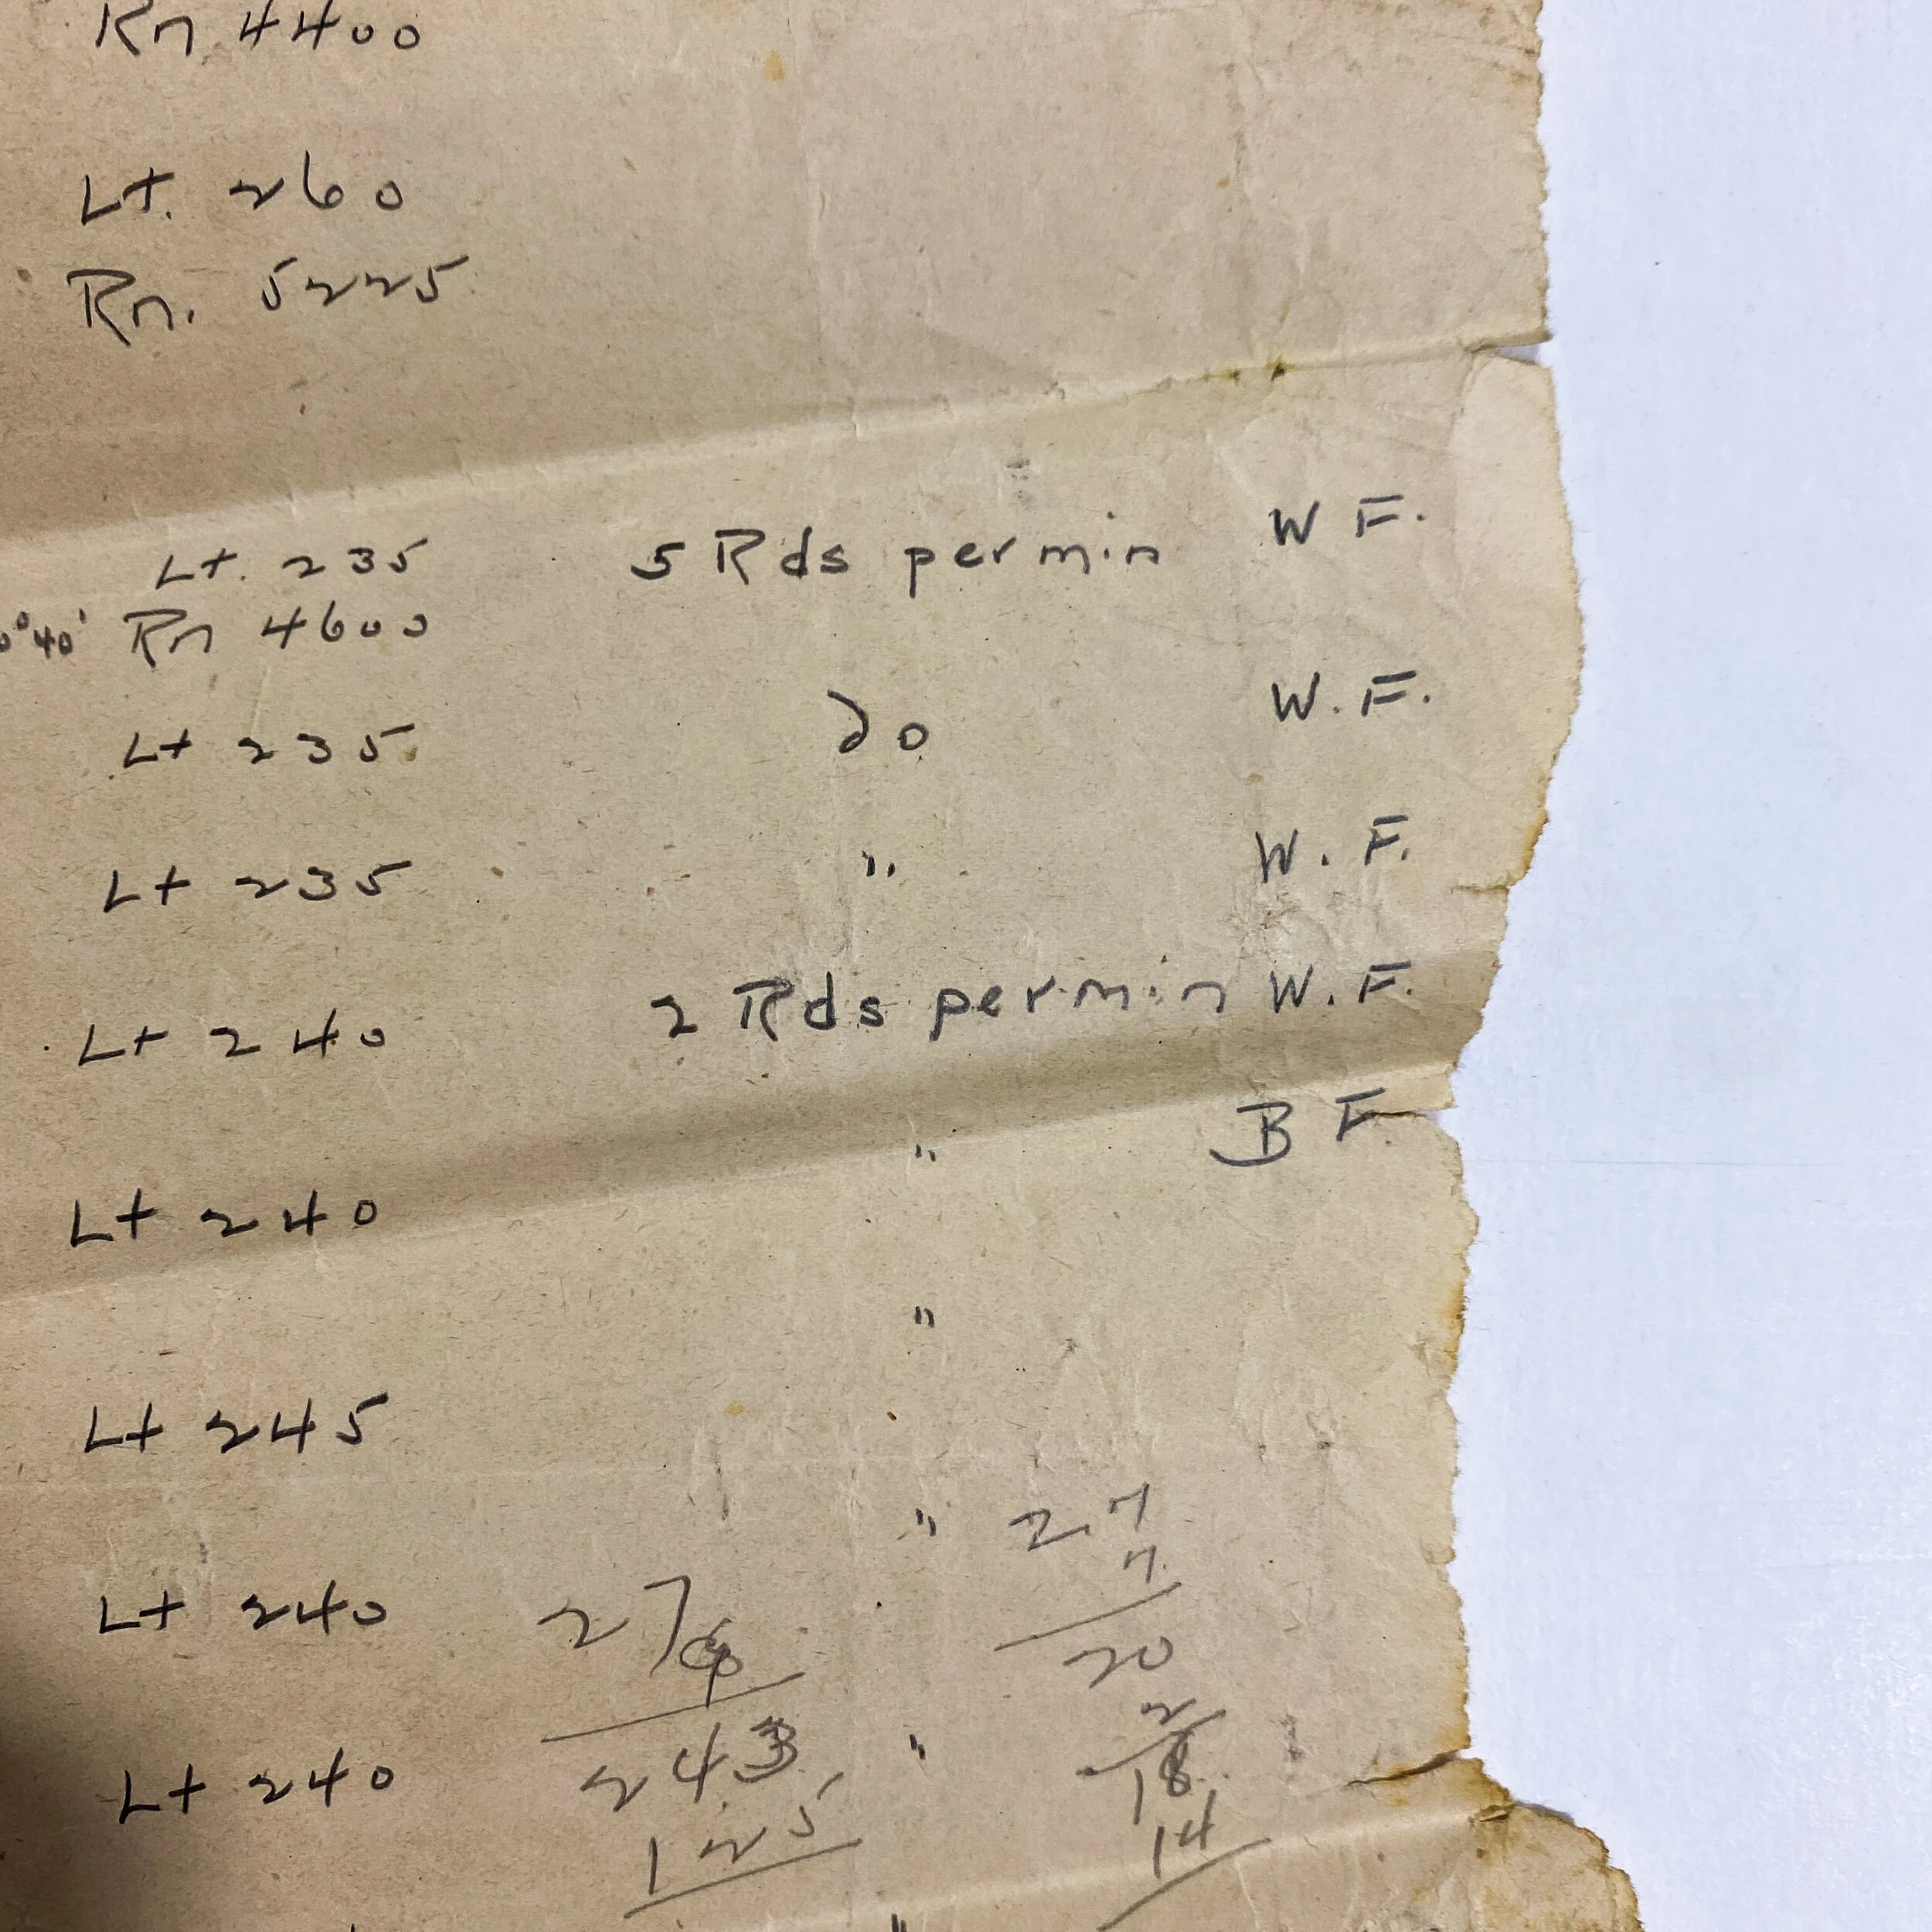 Rn 4400
Lt. 260
Rn. 5225
Lt. 235 5 Rds per min W F.
0°40' Rn 4600
Lt 235 do W.F.
Lt 235 " W.F.
Lt 240 2 Rds per min W.F.
Lt 240 " B F.
Lt 245 "
" 27
7
Lt 240 27
20
2
243 " 18
Lt 240
125 14
"